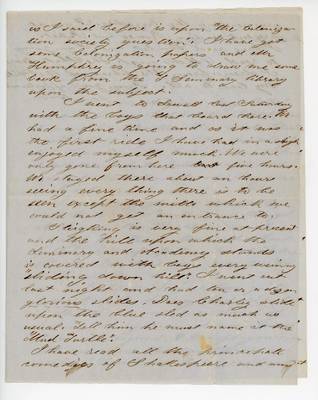 as I said before is upon the Coloniza-
tion society question. I have got
some Colonization papers and Mr
Humphrey is going to draw me some
book from the Seminary library
upon the subject.
I went to Lowell last Saturday
with the boys that board here. We
had a fine time and as it was
the first ride I have had in a sleigh
enjoyed myself much. We were
only gone from here five hours.
We stayed there about an hour
seeing every thing there is to be
seen except the mills which we
could not get an entrance to.
Sleighing is very fine at present
and the hill upon which the
Seminary and Academy stands
is covered with boys every evening
"sliding down hill." I went out
last night and had ten or a dozen
glorious slides. Does Charley slide
upon the blue sled as much as
usual. Tell him he must name it the
"Mud Turtle."
I have read all the principal
comedies of Shakespeare and